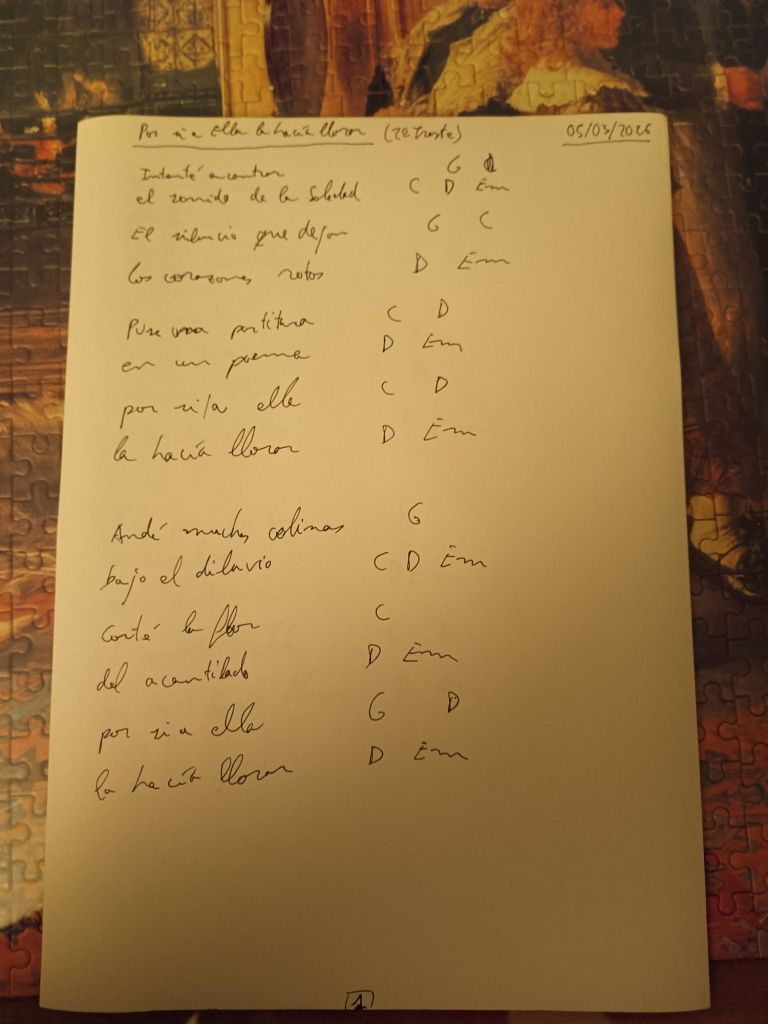 Por si a Ella la hacía llorar (2º Traste) 05/03/2026
Intenté encontrar G
el sonido de la Soledad C D Em
El silencio que dejan G C
los corazones rotos D Em
Puse una partitura C D
en un poema D Em
por si a ella C D
la hacía llorar D Em
Andé muchas colinas G
bajo el diluvio C D Em
Corté la flor C
del acantilado D Em
por si a ella G D
la hacía llorar D Em
1